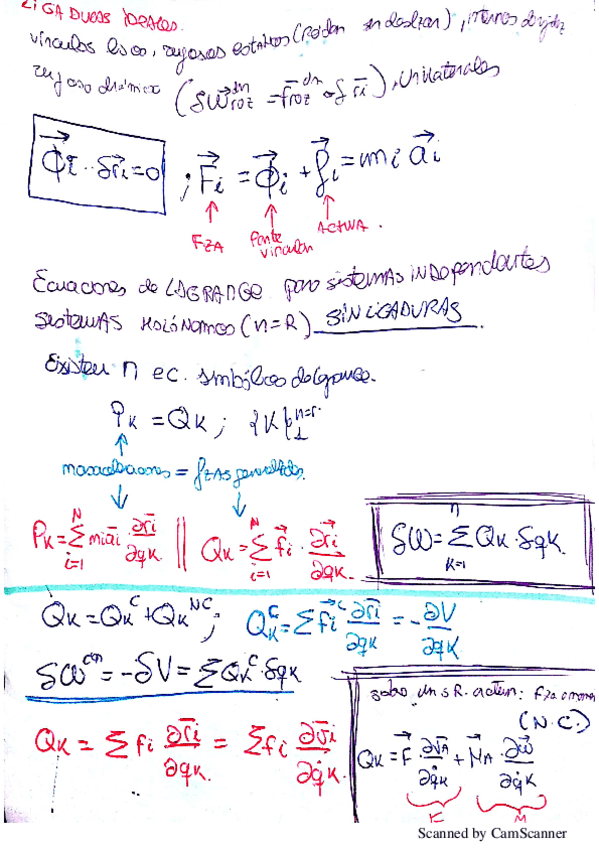 LIGADURAS IDEALES.
vínculos lisos, rugosos estáticos (ruedan sin deslizar), internos
rugoso dinámico (δW⃗roz^dn = f⃗roz^dn · δr⃗i), Unilaterales
Φ⃗i · δr⃗i = 0 ; F⃗i = Φ⃗i + f⃗i = mi a⃗i
FZA fza vincular ACTIVA.
Ecuaciones de LAGRANGE para sistemas INDependientes
SISTEMAS HOLÓNOMOS (n=R) SIN LIGADURAS
Existen n ec. simbólicas de Lagrange.
PK = QK ; {K}₁ⁿ⁼ʳ
= FZAS generalizadas.
PK = Σ_{i=1}^{N} mi āi ∂r̄i/∂qK || QK = Σ_{i=1}^{N} f⃗i · ∂r⃗i/∂qK. δW = Σ_{K=1}^{n} QK · δqK.
QK = QK^C + QK^NC ; QK^C = Σ f⃗i^C ∂r̄i/∂qK = -∂V/∂qK
δW^con = -δV = Σ QK^C · δqK
sobre un S.R. actúan: Fza o momento
(N.C.)
QK = Σ fi ∂r̄i/∂qK = Σ fi ∂v̄i/∂q̇K. QK = F⃗ · ∂v⃗A/∂q̇K + M⃗A · ∂ω⃗/∂q̇K
F M
Scanned by CamScanner